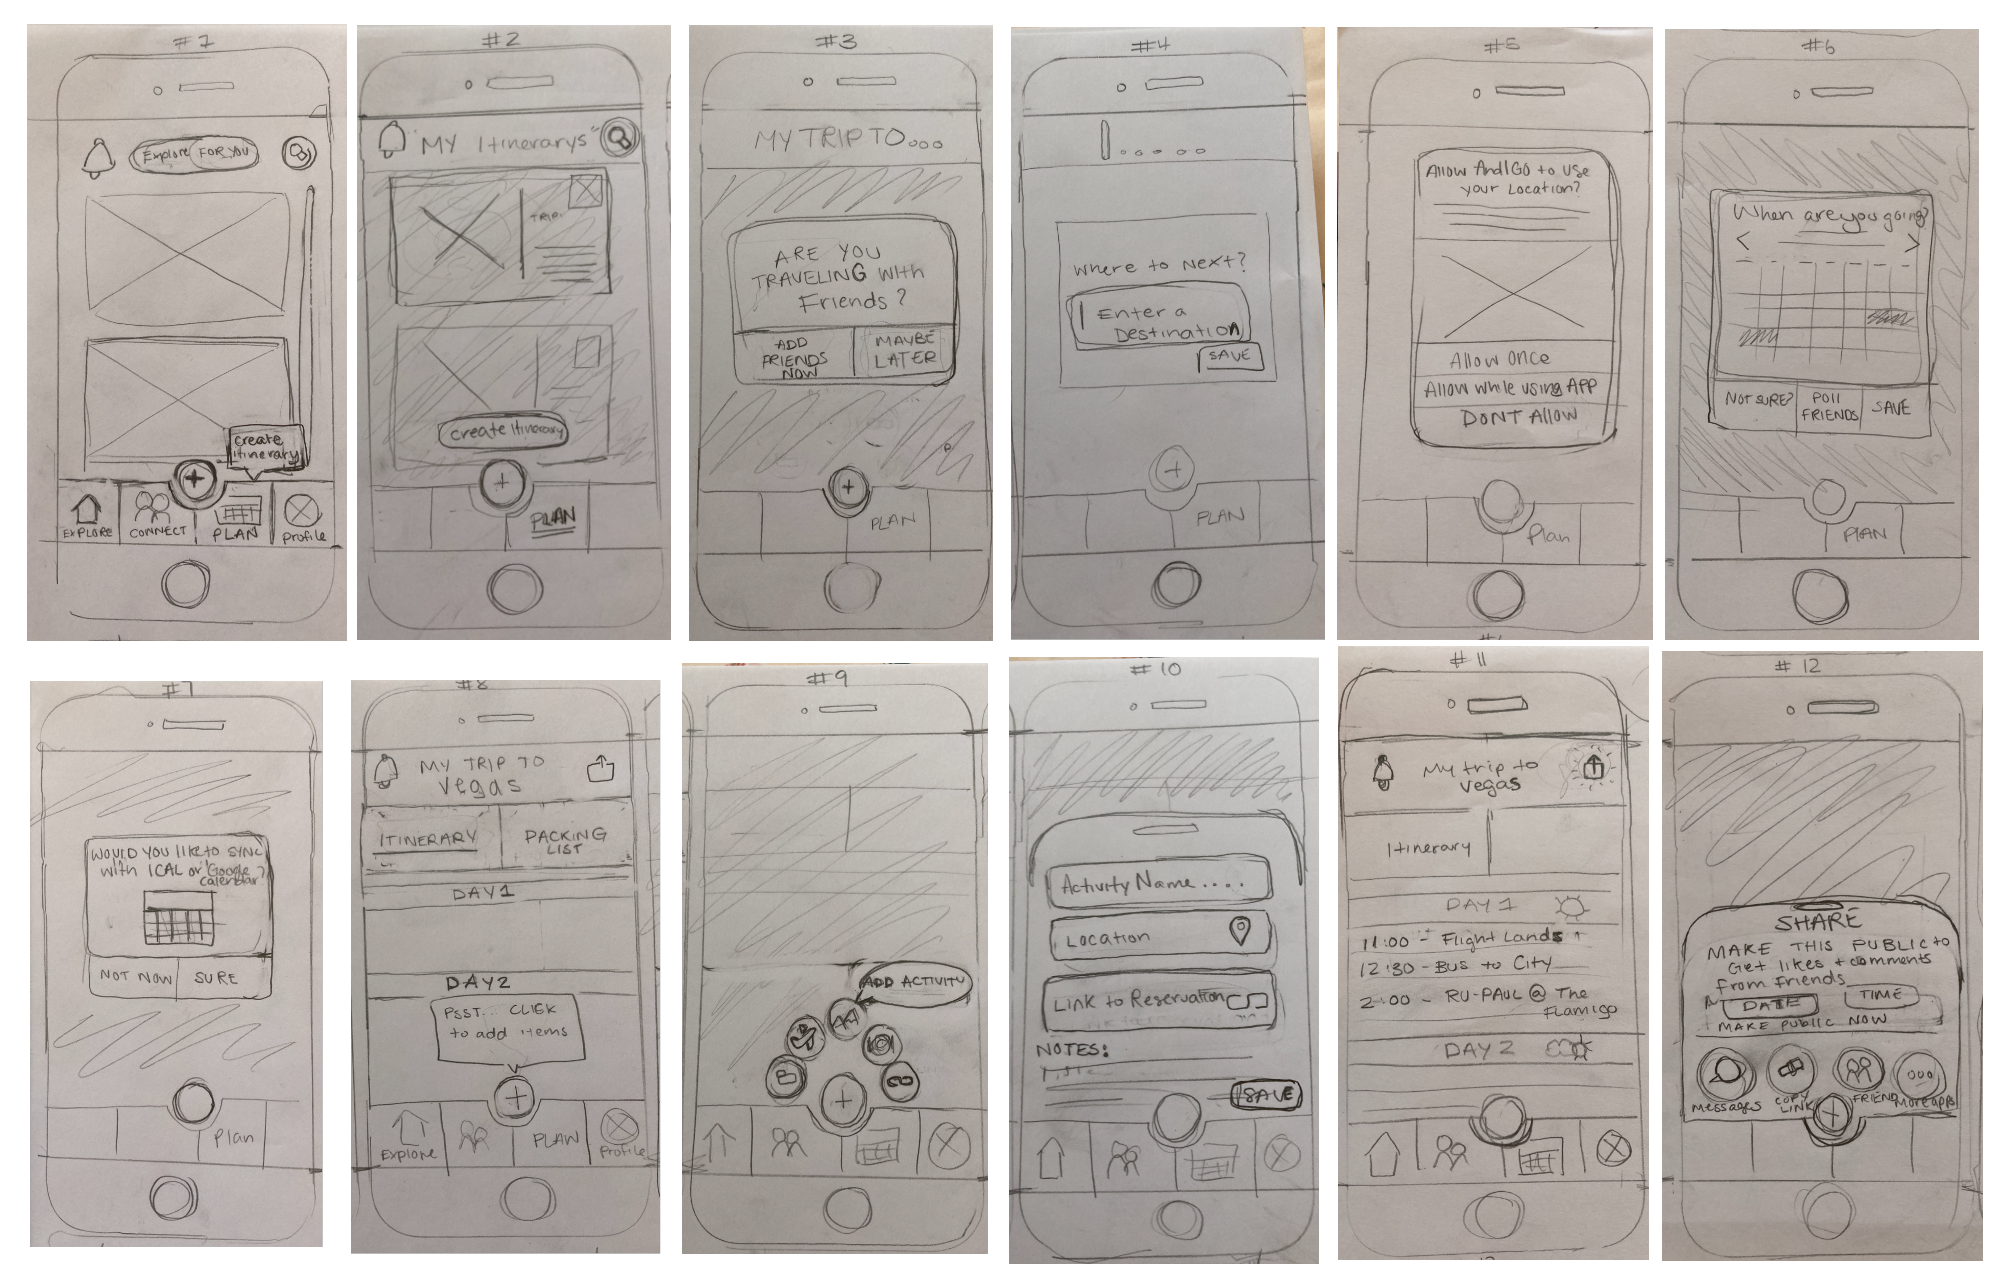 #1
Explore FOR YOU
create
itinerary
EXPLORE CONNECT PLAN Profile
#2
"MY Itinerarys"
TRIP.
create Itinerary
PLAN
#3
MY TRIP TO...
ARE YOU
TRAVELING With
Friends?
ADD
FRIENDS
NOW
MAYBE
LATER
PLAN
#4
Where to Next?
Enter a
Destination
SAVE
PLAN
#5
Allow AndIGO to Use
your Location?
Allow Once
Allow while using APP
DONT ALLOW
Plan
#6
When are you going?
NOT SURE?
POll
FRIENDS
SAVE
PLAN
#7
WOUlD YOU like to SYNC
with ICAL or Google
calendar?
NOT NOW
SURE
Plan
#8
MY TRIP TO
Vegas
ITINERARY
PACKING
LIST
DAY1
DAY2
PSST... CLICK
to add items
Explore PLAN Profile
#9
ADD ACTIVITY
#10
Activity Name....
Location
Link to Reservation
NOTES:
SAVE
#11
My trip to
Vegas
Itinerary
DAY 1
11:00 - Flight Lands
12:30 - BUS to City
2:00 - RU-PAUL @ The
Flamigo
DAY 2
#12
SHARE
MAKE THIS PUBLIC to
Get likes + comments
from friends
DATE TIME
MAKE PUBLIC NOW
Messages
COPY
LINK
FRIEND
More apps